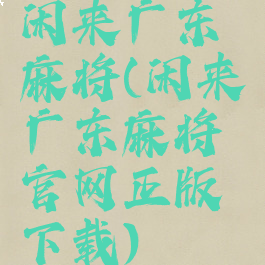 闲来广东
麻将(闲来
广东麻将
官网正版
下载)